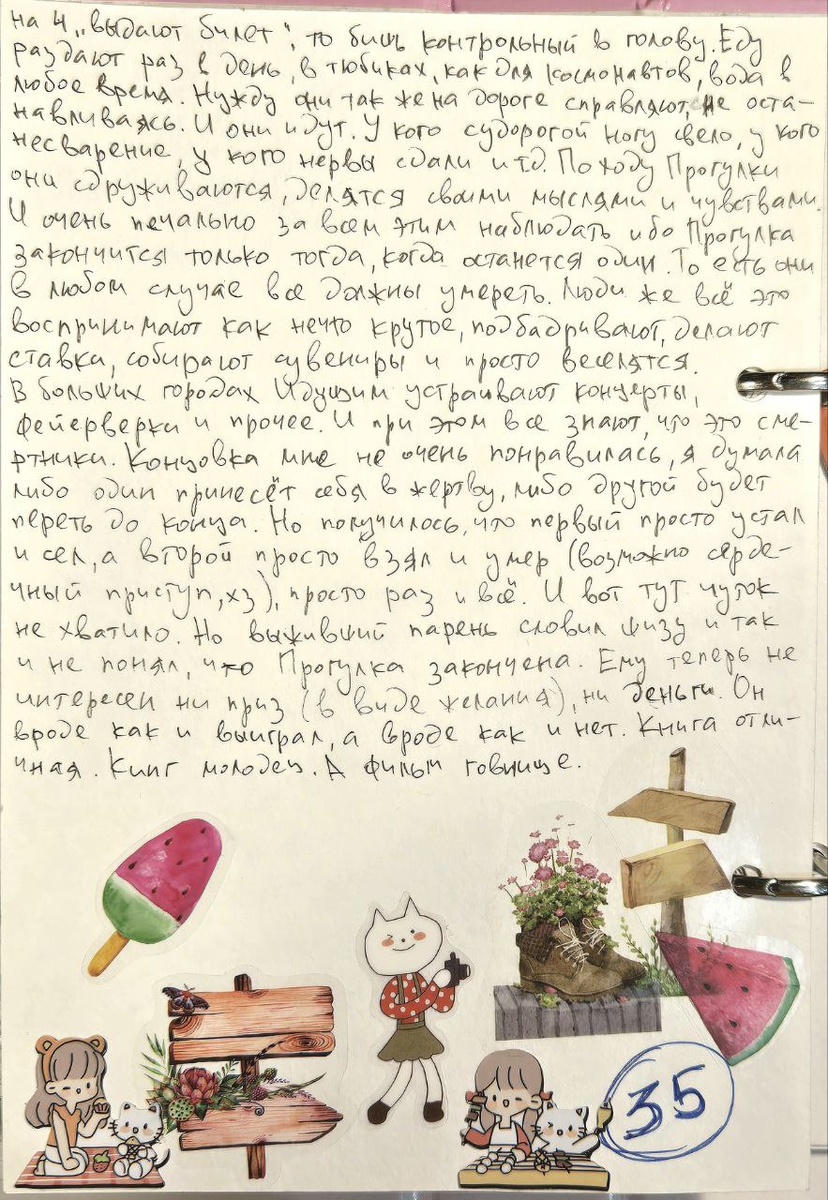 на 4 „выдают билет", то бишь контрольный в голову. Еду
раздают раз в день, в тюбиках, как для космонавтов, вода в
любое время. Нужду они так же на дороге справляют, не оста-
навливаясь. И они идут. У кого судорогой ногу свело, у кого
несварение, у кого нервы сдали и т.д. По ходу Прогулки
они сдруживаются, делятся своими мыслями и чувствами.
И очень печально за всем этим наблюдать ибо Прогулка
закончится только тогда, когда останется один. То есть они
в любом случае все должны умереть. Люди же всё это
воспринимают как нечто крутое, подбадривают, делают
ставки, собирают сувениры и просто веселятся.
В больших городах Идущим устраивают концерты,
фейерверки и прочее. И при этом все знают, что это сме-
ртники. Концовка мне не очень понравилась, я думала
либо один принесёт себя в жертву, либо другой будет
переть до конца. Но получилось, что первый просто устал
и сел, а второй просто взял и умер (возможно серде-
чный приступ, хз), просто раз и всё. И вот тут чуток
не хватило. Но выживший парень словил шизу и так
и не понял, что Прогулка закончена. Ему теперь не
интересен ни приз (в виде желания), ни деньги. Он
вроде как и выиграл, а вроде как и нет. Книга отли-
чная. Кинг молодец. А фильм говнище.
35